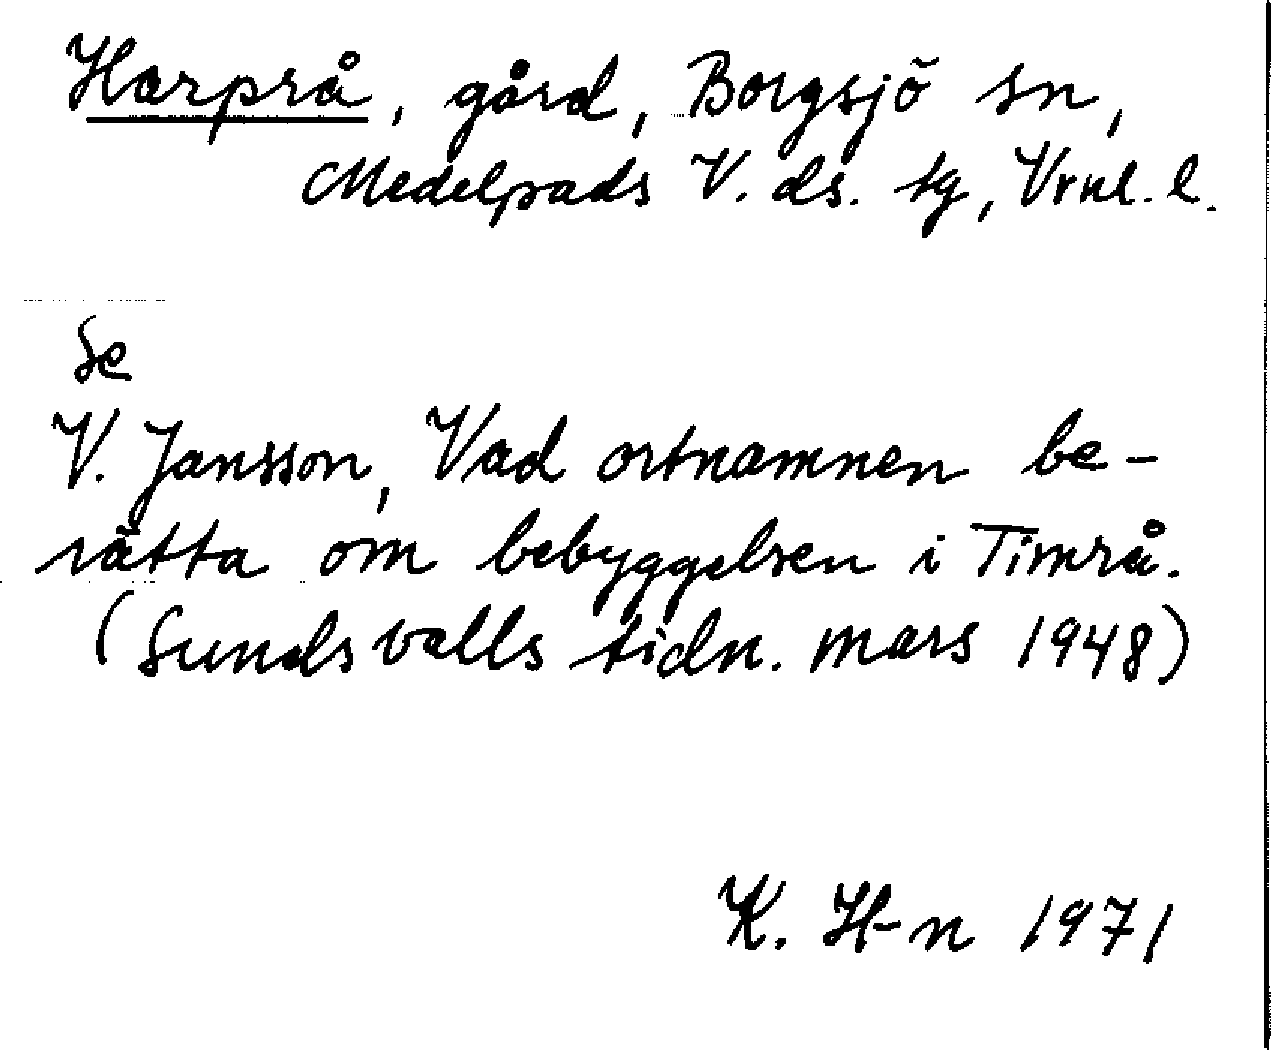 Harprå, gård, Borgsjö sn,
Medelpads V. ds. tg, Vrnl. l.
Se
V. Jansson, Vad ortnamnen be-
rätta om bebyggelsen i Timrå.
(Sundsvalls tidn. mars 1948)
K. H-n 1971